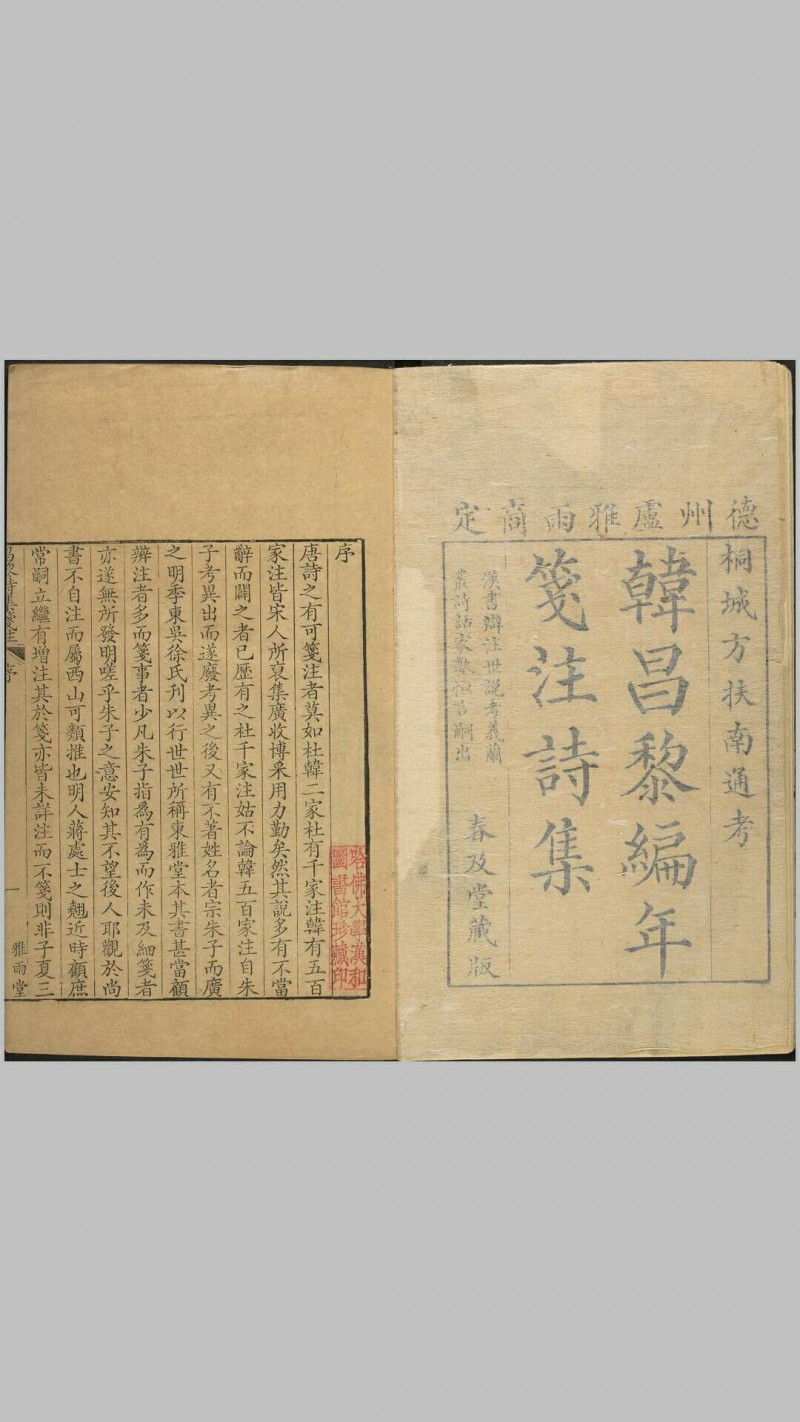 德州盧雅雨商定
桐城方扶南通考
韓昌黎編年
箋注詩集
漢書辯注世說考義蘭
叢詩話家數 嗣出
春及堂藏版
序
唐詩之有可箋注者莫如杜韓二家杜有千家注韓有五百
家注皆宋人所裒集廣收博采用力勤矣然其說多有不當
辭而闢之者已歷有之杜千家注姑不論韓五百家注自朱
子考異出而遂廢考異之後又有不著姓名者宗朱子而廣
之明季東吳徐氏刊以行世世所稱東雅堂本其書甚當顧
辨注者多而箋事者少凡朱子指為有為而作未及細箋者
亦遂無所發明嗟乎朱子之意安知其不望後人耶觀於尚
書不自注而屬西山可類推也明人蔣處士之翹近時顧庶
常嗣立繼有增注其於箋亦皆未詳注而不箋則非子夏三
序
一
雅雨堂
塔佛大學漢和
圖書館珍藏印